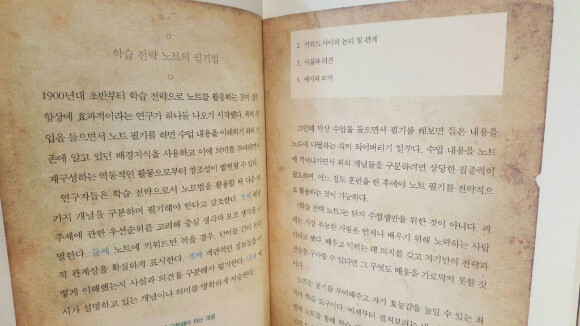 학습 전략 노트의 필기법
1900년대 초반부터 학습 전략으로 노트를 활용하는 것이 성적
향상에 효과적이라는 연구가 하나둘 나오기 시작했다. 특히 수
업을 들으면서 노트 필기를 하면 수업 내용을 이해하기 위해 기
존에 알고 있던 배경지식을 사용하고 이에 의미를 부여하면서
재구성하는 역동적인 활동으로부터 창조성이 발현될 수 있다.
연구자들은 학습 전략으로서 노트법을 활용할 때 다음
가지 개념을 구분하며 필기해야 한다고 강조한다. 첫째 해당
주제에 관한 우선순위를 고려해 중심 생각과 보조 생각을
분한다. 둘째 노트에 키워드만 적을 경우, 단어들 간의 논리
적 관계성을 확실하게 표시한다. 셋째 객관적인 정보들을
떻게 이해했는지 사실과 의견을 구분해서 필기한다. 넷째
시가 설명하고 있는 개념이나 의미를 명확하게 서술한다.
2. 키워드 사이의 논리 및 관계
3. 사실과 의견
4. 예시와 의미
그런데 막상 수업을 들으면서 필기를 해보면 들은 내용을
노트에 나열하는 식이 되어버리기 일쑤다. 수업 내용을 노트
에 적어나가면서 위의 개념들을 구분하려면 상당한 집중력이
필요하며, 어느 정도 훈련을 한 후에야 노트 필기를 전략적으
로 활용하는 것이 가능하다.
〈학습 전략 노트〉는 단지 수험생만을 위한 것이 아니다.
는 가장 유능한 사람은 언제나 배우기 위해 노력하는 사람
이라고 했다. 배우고 익히는 데 의지를 갖고 자기만의 전략과
전술을 구사할 수 있다면 그 무엇도 배움을 가로막지 못할 것
이다.
노트는 필기를 부여해주고 자기 효능감을 높일 수 있는 최
적의 학습 도구이다.
노트를 통해